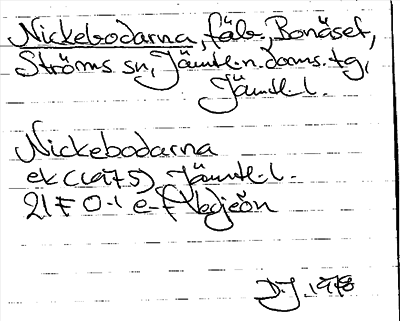 Nickebodarna, fäb., Bonäset,
Ströms sn, Jämtl. n. doms. tg,
Jämtl. l.
Nickebodarna
ek (1975) Jämtl. l.
21F 0-1 e-f
D.J. 1978